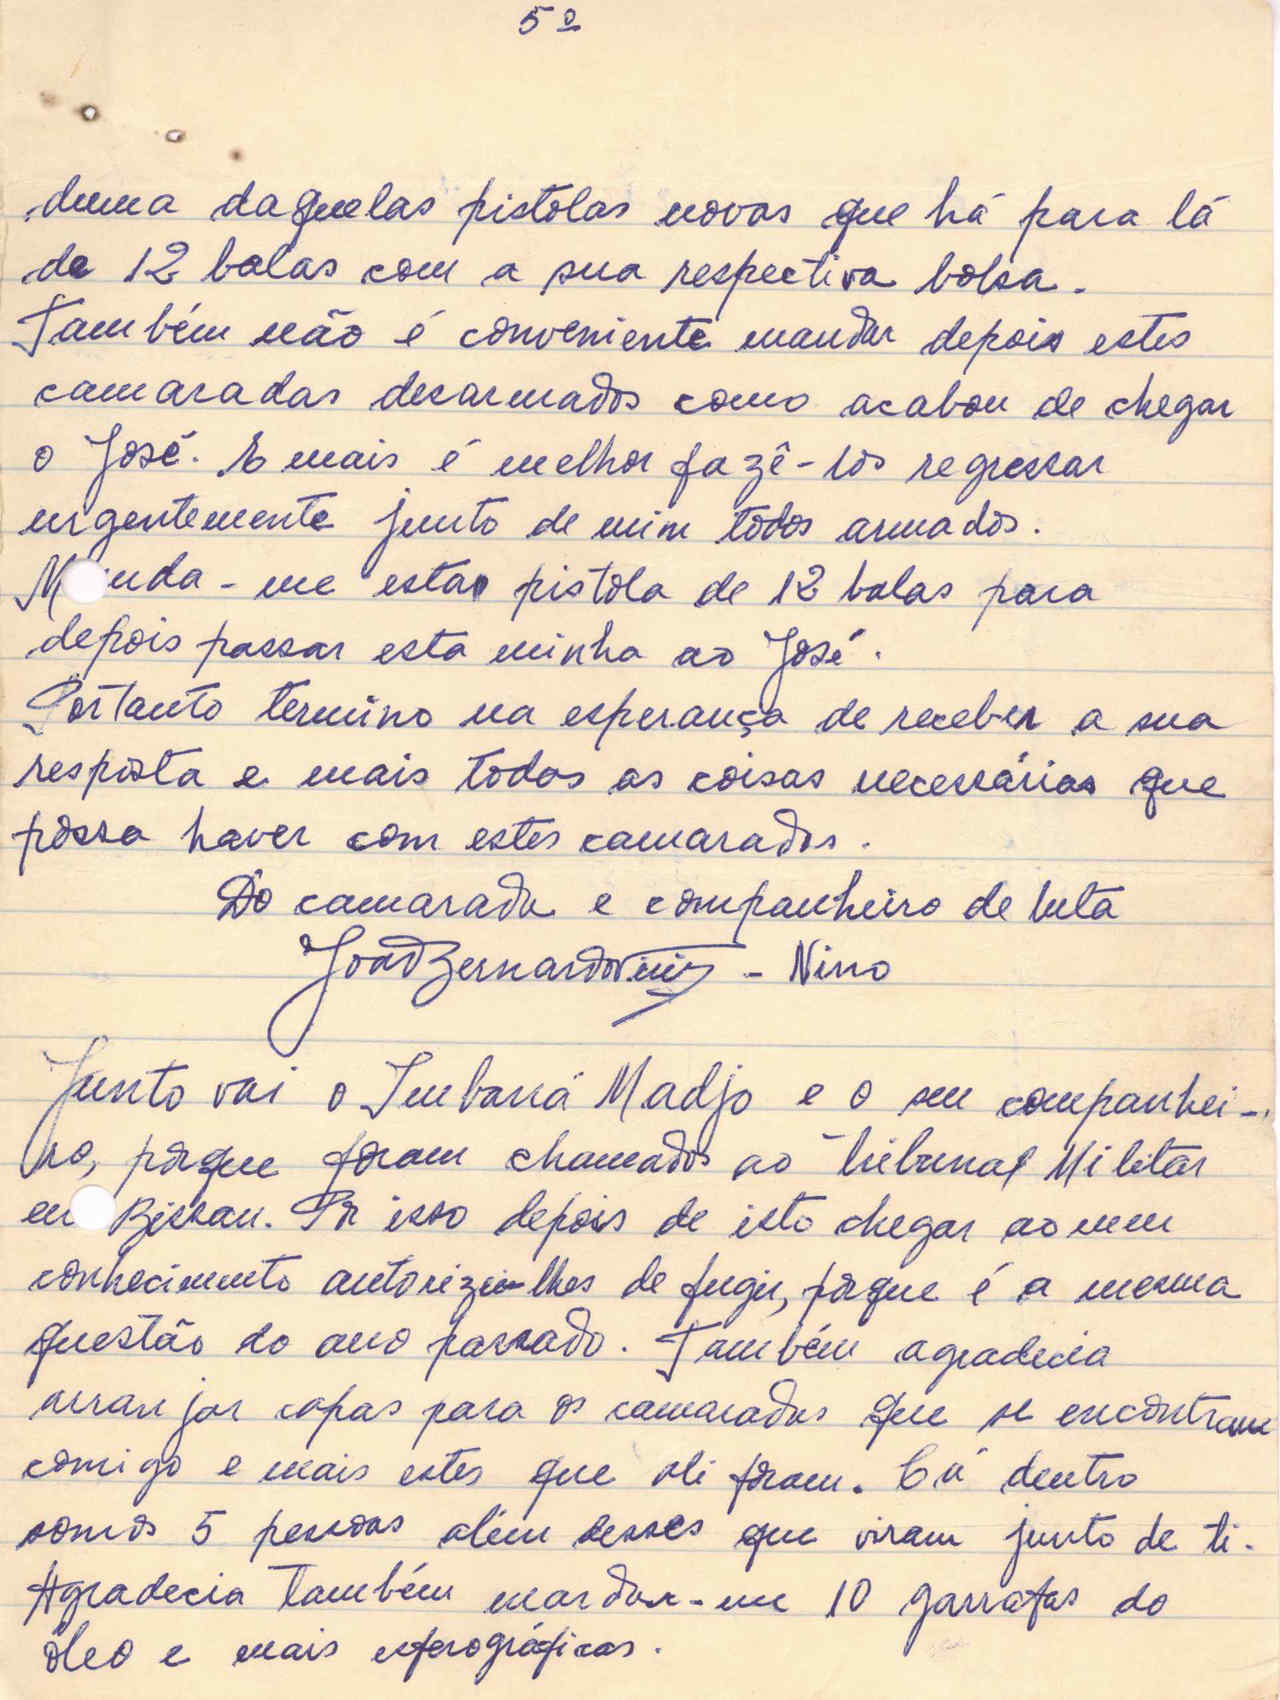 5º
duma daquelas pistolas novas que há para lá
de 12 balas com a sua respectiva bolsa.
Também não é conveniente mandar depois estes
camaradas desarmados como acabou de chegar
o José. E mais é melhor fazê-los regressar
urgentemente junto de mim todos armados.
Manda-me esta pistola de 12 balas para
depois passar esta minha ao José.
Portanto termino na esperança de receber a sua
resposta e mais todas as coisas necessárias que
possa haver com estes camaradas.
Do camarada e companheiro de luta
João Bernardo Vieira - Nino
Junto vai o Imbaná Madjo e o seu companhei-
ro, porque foram chamados ao Tribunal Militar
em Bissau. Por isso depois de isto chegar ao meu
conhecimento autorizei-lhes de fugir, porque é a mesma
questão do ano passado. Também agradecia
arranjar capas para os camaradas que se encontram
comigo e mais estes que ali foram. Cá dentro
somos 5 pessoas além desses que viram junto de ti.
Agradecia também mandar-me 10 garrafas do
óleo e mais esferográficas.